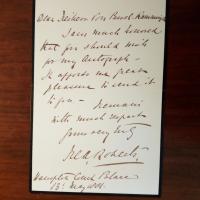 Dear Freiherr Von
I am much honored
that you should wish
for my Autograph -
It affords me great
pleasure to send it
to you - I remain
with much respect
yours very truly
Roberts
Hampton Court Palace
13th May